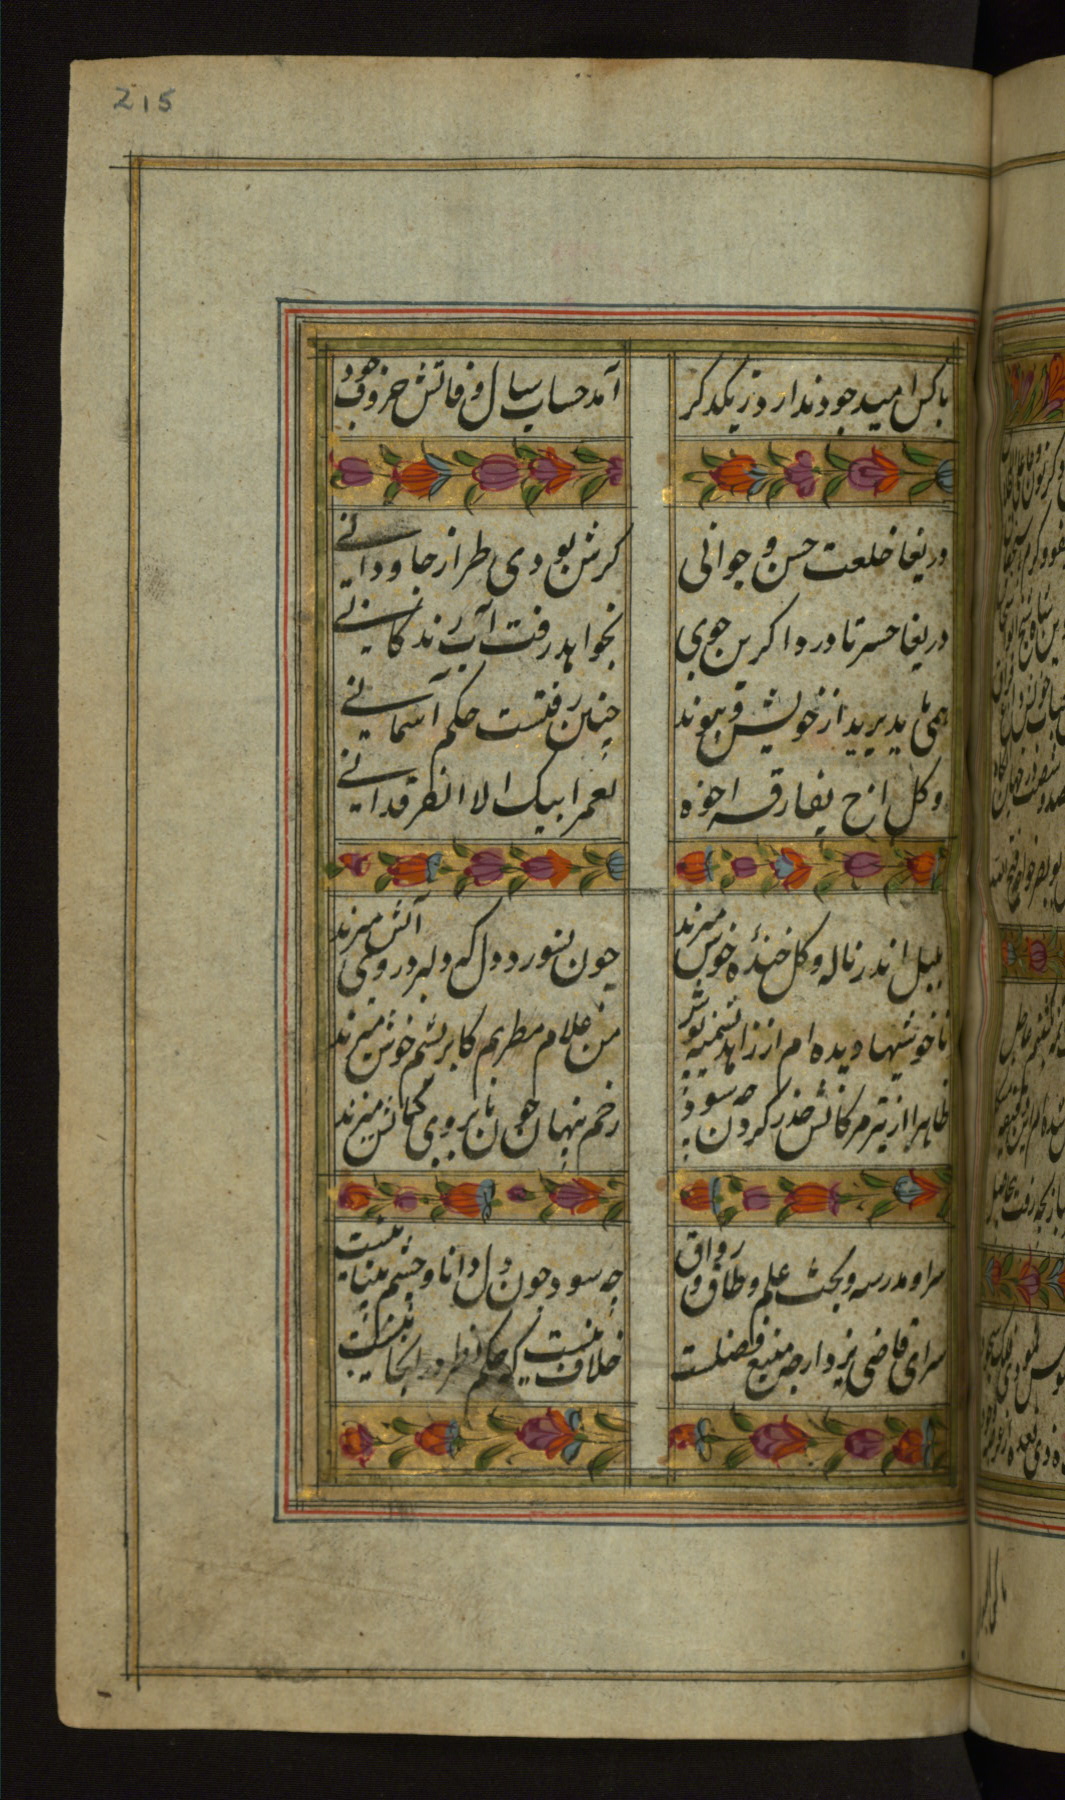 215
تا کس امید جود ندارد ز یکدگر
آمد حساب سال وفاتش حروف جود
دریغا خلعت حسن و جوانی
گرش بودی طراز جاودانی
دریغا حسرتا دردا کزین جوی
بخواهد رفت آب زندگانی
همی باید برید از خویش و پیوند
چنین رفتست حکم آسمانی
وکل اخ یفارقه اخوه
لعمر ابیک الا الفرقدانی
بلبل اندر ناله و گل خنده خوش میزند
چون نسوزد دل که دلبر در وی آتش میزند
ناخوشیها دیده‌ام از زاهد پشمینه پوش
من غلام مطربم کابریشم خوش میزند
ظاهرا از تیر مژگانش حذر کردن چه سود
زخم پنهان چون بابروی کمانش میزند
سرا و مدرسه و بحث علم و طاق و رواق
چه سود چون دل دانا و چشم بینا نیست
سرای قاضی یزد ارچه منبع فضلست
خلاف نیست که علم نظر در انجا نیست